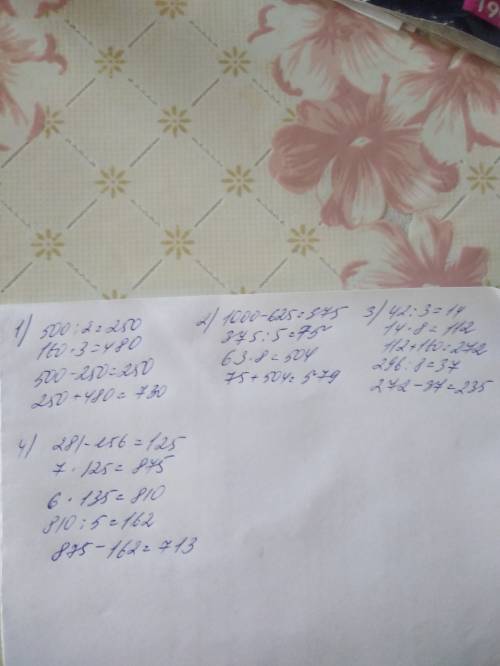 19
1) 500:2=250
160·3=480
500-250=250
250+480=730
2) 1000-625=375
375:5=75
63·8=504
75+504=579
3) 42:3=14
14·8=112
112+160=272
296:8=37
272-37=235
4) 281-156=125
7·125=875
6·135=810
810:5=162
875-162=713